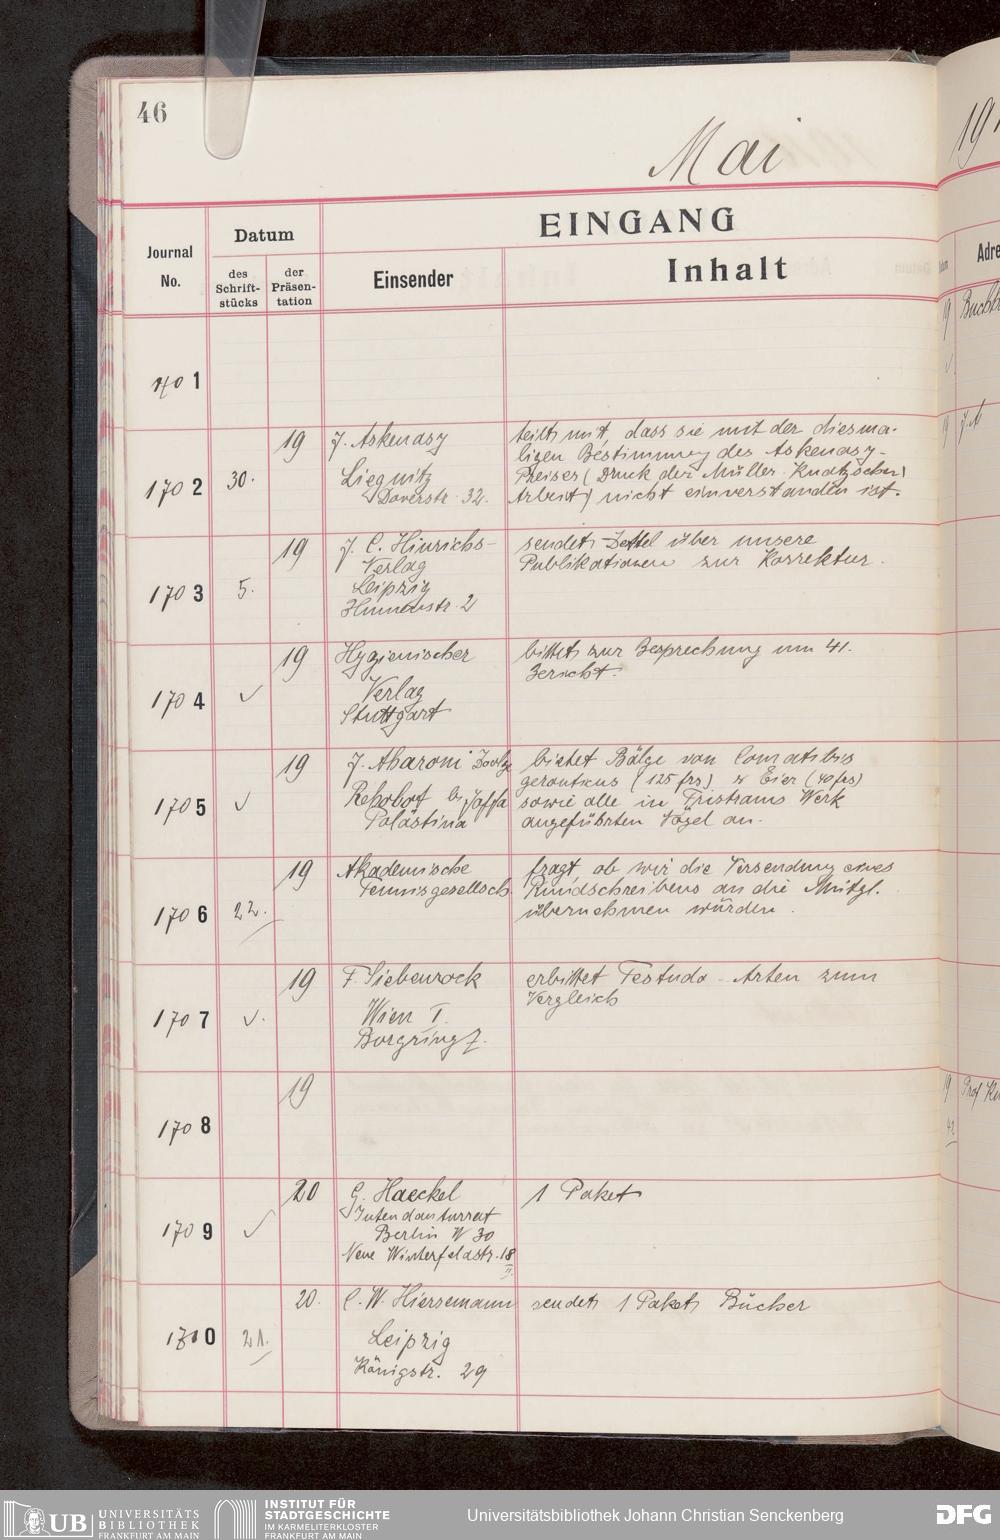 46
Mai
191
EINGANG
Journal No.
Datum
des Schrift-stücks
der Präsen-tation
Einsender
Inhalt
Adre
1701
1702
30.
19
J. Askenasy
Liegnitz
Doverstr. 32.
teilt mit, dass sie mit der diesma-
ligen Bestimmung des Askenasy-
Preises (Druck der Müller-Knatz'schen
Arbeit) nicht einverstanden ist.
1703
5.
19
J. C. Hinrichs-
Verlag
Leipzig
sendet Zettel über unsere
Publikationen zur Korrektur.
1704
✓
19
Hygienischer
Verlag
Stuttgart
bittet zur Besprechung um 41.
Bericht.
1705
✓
19
J. Aharoni
b. Jaffa
Palästina
bietet Bälge von Comatibis
(125 frs) u Eier (40 frs)
sowie alle in Tristrams Werk
angeführten Vögel an.
1706
22.
19
Akademische
Tennisgesellsch.
fragt, ob wir die Versendung eines
Rundschreibens an die Mitgl.
übernehmen würden.
1707
✓.
19
F. Siebenrock
Wien I.
Burgring 7.
erbittet Testudo-Arten zum
Vergleich
1708
19
1709
✓
20
G. Haeckel
Intendanturrat
Berlin W 30
Neue Winterfeldstr. 18
II.
1 Paket
1710
21.
20.
C. W. Hiersemann
Leipzig
Königstr. 29
sendet 1 Paket Bücher
19
19
19
42
UB UNIVERSITÄTS
BIBLIOTHEK
FRANKFURT AM MAIN
INSTITUT FÜR
STADTGESCHICHTE
IM KARMELITERKLOSTER
FRANKFURT AM MAIN
Universitätsbibliothek Johann Christian Senckenberg
DFG